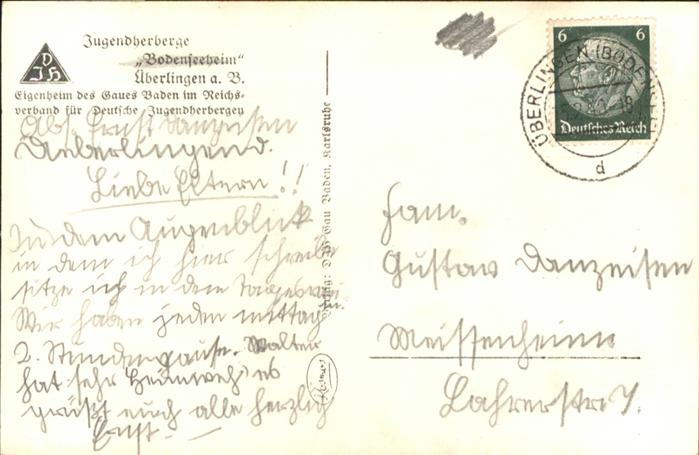 DJH
Jugendherberge
„Bodenseeheim"
Überlingen a. B.
Eigenheim des Gaues Baden im Reichs-
verband für Deutsche Jugendherbergen
Abs. Ernst Danzeisen
Ueberlingend.
Liebe Eltern!!
In dem Augenblick
in dem ich hier schreibe
sitze ich in dem
Wir haben jeden mittag
2. Stundenpause. Walter
hat sehr Heimweh es
grüßt euch alle herzlich
Ernst
Verlag: DJH Gau Baden, Karlsruhe
6 6
Deutsches Reich
ÜBERLINGEN (BODENSEE)
d
Fam.
Gustav Danzeisen
Meissenheim
Lahrerstr. 7.